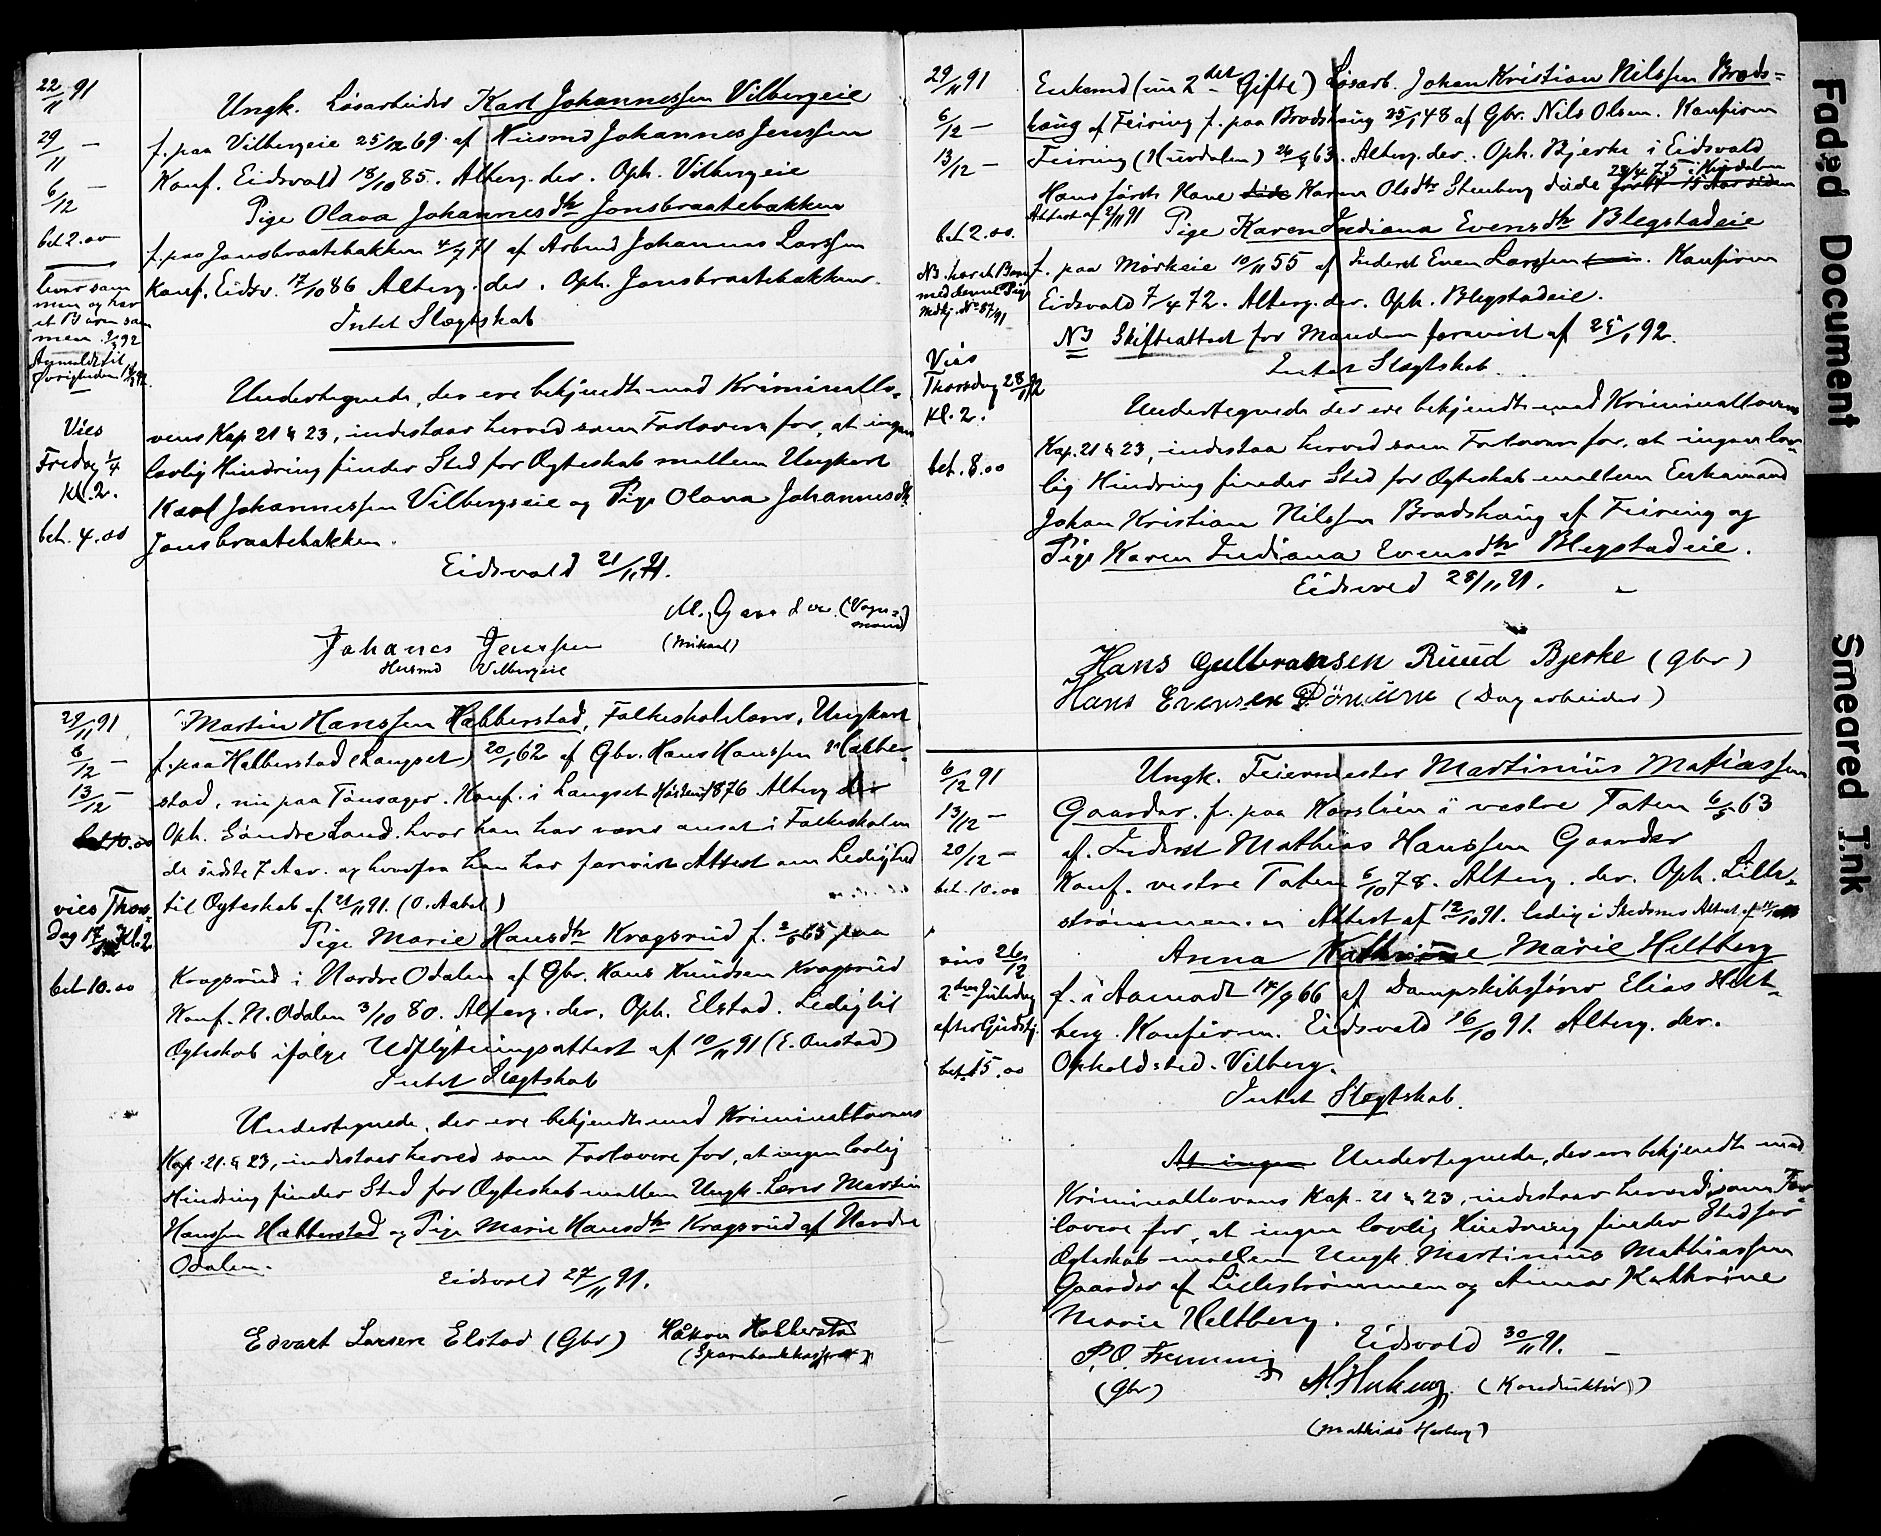 22/11 91
29/11 —
6/12 —
bet 2.00
Lever sam
men og har
et Barn sam
men
Anmeldt til
Øvrigheden
Vies
Fredag 1/4
Kl. 2.
bet. 4.00
Ungk. Løsarbeider Karl Johannessen Vilbergeie
f. paa Vilbergeie 25/12 69 af Husmd Johannes Jenssen
Konf. Eidsvold 18/10 85. Alterg. der. Oph. Vilbergeie
Pige Olava Johannesdtr Jonsbraatebakken
f. paa Jonsbraatebakken 4/7 71 af Arbmd Johannes Larssen
Konf. Eidsv. 17/10 86 Alterg. der. Oph. Jonsbraatebakken.
Intet Slægtskab
Undertegnede, der ere bekjendte med Kriminallo-
vens Kap 21 § 23, indestaar herved som Forlovere for, at ingen
lovlig Hindring finder Sted for Ægteskab mellem Ungkarl
Karl Johannessen Vilbergeie og Pige Olava Johannesdtr
Jonsbraatebakken.
Eidsvold 21/11 91.
M. Gaarder. (Vogn-
mand)
Johanes Jenssen (Mikael)
Husmd Vilbergeie
29/11 91
6/12 —
13/12 —
bet 10.00
vies Thors-
dag 17/12 Kl. 2
bet 10.00
Martin Hanssen Habberstad, Folkeskolelærer, Ungkarl
f. paa Habberstad (Langset) 20/1 62 af Gbr. Hans Hanssen Habber-
stad, nu paa Tønsager. Konf. i Langset Høsten 1876 Alterg der
Oph. Søndre Land. hvor han har været ansat i Folkeskolen
de sidste 7 Aar. og hvorfra han har forevist Attest om Ledighed
til Ægteskab af 21/11 91. (O. Aabel)
Pige Marie Hansdtr Kragsrud f. 2/6 65 paa
Kragsrud i Nordre Odalen af Gbr. Hans Knudsen Kragsrud
Konf. N. Odalen 3/10 80. Alterg. der. Oph. Elstad. Ledig til
Ægteskab ifølge Udflytningsattest af 10/11 91 (E. Onstad)
Intet Slægtskab
Undertegnede, der ere bekjendte med Kriminallovens
Kap. 21. § 23, indestaar herved som Forlovere for, at ingen lovlig
Hindring finder Sted for Ægteskab mellem Ungk. Lærer Martin
Hanssen Habberstad og Pige Marie Hansdtr Kragsrud af Nordre
Odalen.
Eidsvold 27/11 91.
Edvart Larsen Elstad (Gbr) Håkon Habberstad
(Sparebankkasserer)
29/11 91
6/12 —
13/12 —
bet 2.00.
NB. har et Barn
med denne Pige
Vies
Thorsdag 28/1 92
Kl. 2.
bet. 8.00
Enkemd (nu 2det Gifte) Løsarb. Johan Kristian Nilssen Brods-
haug af Feiring f. paa Brodshaug 25/1 48 af Gbr. Nils Olsen. Konfirm
Feiring (Hurdalen) 63. Alterg. der. Oph. Bjerke i Eidsvold
Hans første Kone Karen Olsdtr Stenberg døde 23/4 75 i Hurdalen
Attest af 2/11 91 Pige Karen Indiana Evensdtr Blegstadeie
f. paa Mørkeie 10/11 55 af Inderst Even Larssen. Konfirm
Eidsvold 7/4 72. Alterg. der. Oph. Blegstadeie.
NB Skifteattest for Manden forevist af 25/1 92.
Intet Slægtskab.
Undertegnede der ere bekjendte med Kriminallovens
Kap. 21 § 23, indestaa herved som Forlovere for, at ingen lov-
lig Hindring finder Sted for Ægteskab mellem Enkemand
Johan Kristian Nilssen Brodshaug af Feiring og
Pige Karen Indiana Evensdtr Blegstadeie.
Eidsvold 28/11 91.
Hans Gulbransen Ruud Bjerke (Gbr)
Hans Evensen (Dagarbeider)
6/12 91
13/12 —
20/12 —
bet. 10.00
vies 26/12
2den Juledag
efter Gudstj.
bet 5.00
Ungk. Feiermester Martinius Matiassen
Gaarder. f. paa Korslien i vestre Toten 6/5 63
af Inderst Mathias Hanssen Gaarder
Konf. vestre Toten 6/10 78. Alterg. der. Oph. Lille-
strømmen. Attest af 12/10 91. ledig i Skedsmo Attest af
Anna Kathrine Marie Heltberg
f. i Aamodt 18/9 66 af Dampskibsfører Elias Helt-
berg. Konfirm. Eidsvold 16/10 91. Alterg. der.
Opholdsted. Vilberg.
Intet Slægtskab.
At ingen Undertegnede, der er bekjendt med
Kriminallovens Kap. 21 § 23, indestaar herved som For-
lovere for, at ingen lovlig Hindring finder Sted for
Ægteskab mellem Ungk. Martinius Mathiassen
Gaarder af Lillestrømmen og Anna Kathrine
Marie Heltberg.
Eidsvold 30/11 91.
P. O. Fremmig
(Gbr) (Konduktør)
(Mathias Herberg)
Faded Document
Smeared Ink